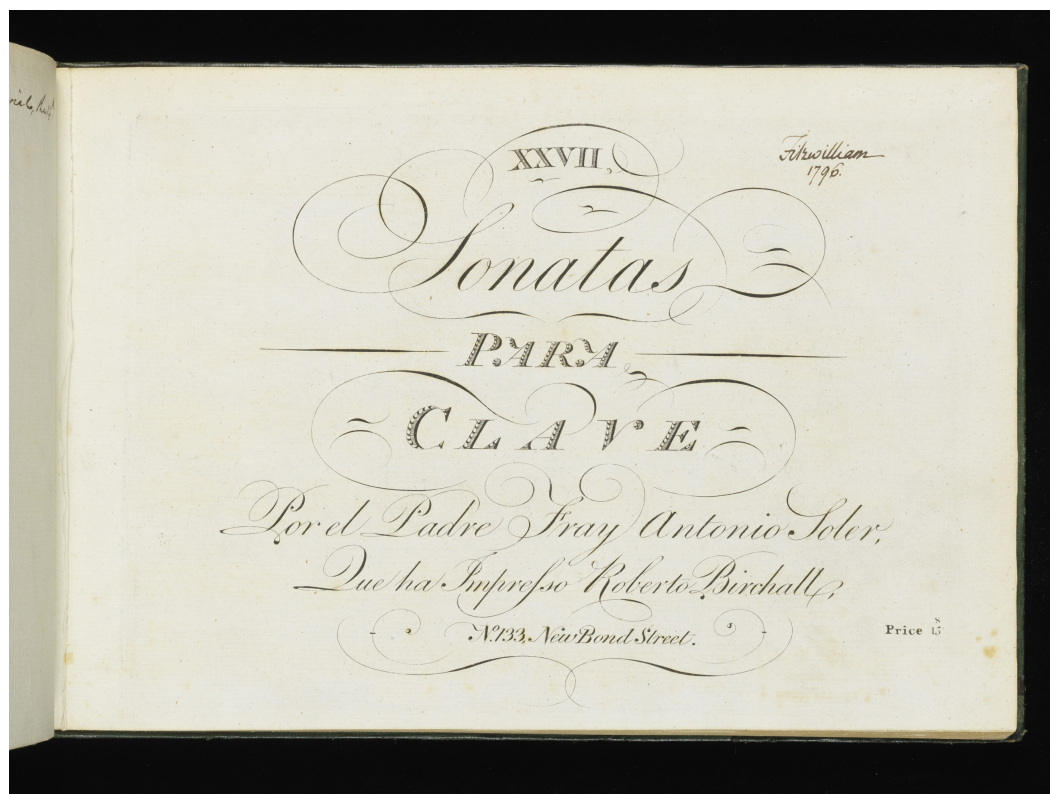 Fitzwilliam
1796.
XXVII,
Sonatas
PARA
CLAVE
Por el Padre Fray Antonio Soler,
Que ha Impreſso Roberto Birchall,
N.º 133, New Bond Street.
Price 15 S